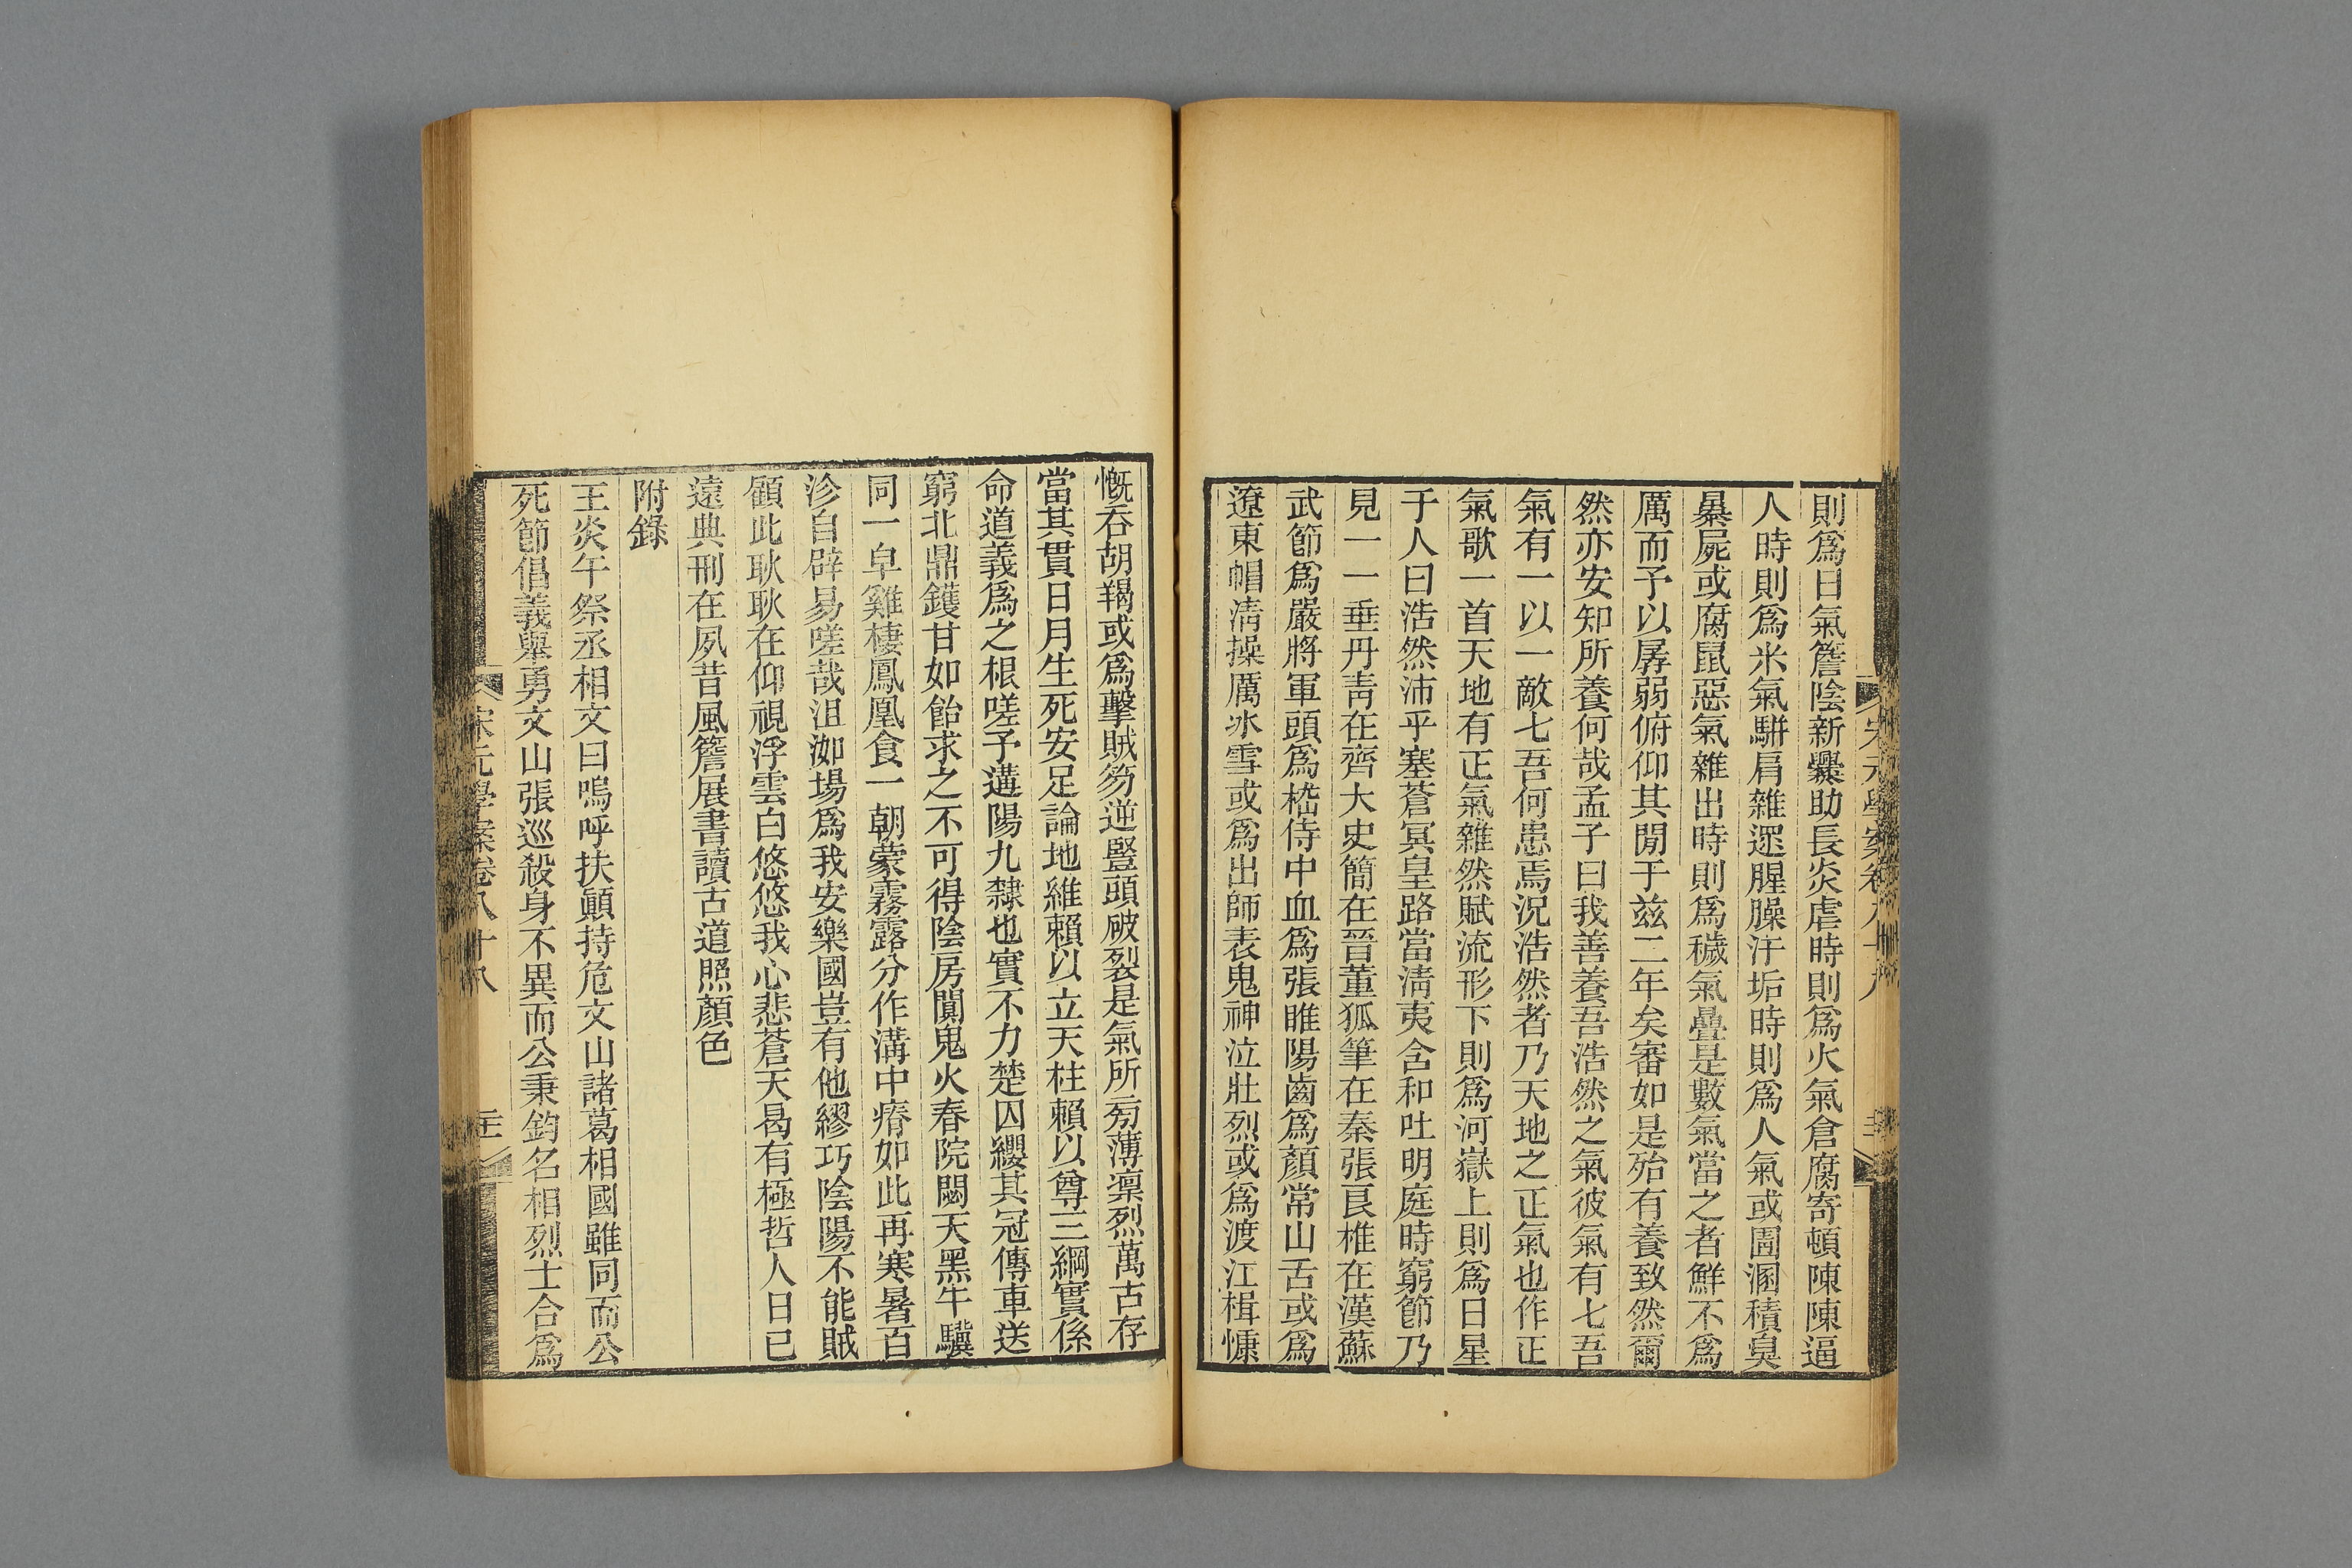 則爲日氣簷陰新爨助長炎虐時則爲火氣倉腐寄頓陳陳逼
人時則爲米氣駢肩雜遝腥臊汙垢時則爲人氣或圊溷積臭
暴屍或腐鼠惡氣雜出時則爲穢氣疊是數氣當之者鮮不爲
厲而予以孱弱俯仰其閒于兹二年矣審如是殆有養致然爾
然亦安知所養何哉孟子曰我善養吾浩然之氣彼氣有七吾
氣有一以一敵七吾何患焉況浩然者乃天地之正氣也作正
氣歌一首天地有正氣雜然賦流形下則爲河嶽上則爲日星
于人曰浩然沛乎塞蒼冥皇路當淸夷含和吐明庭時窮節乃
見一一垂丹靑在齊大史簡在晉董狐筆在秦張良椎在漢蘇
武節爲嚴將軍頭爲嵇侍中血爲張睢陽齒爲顏常山舌或爲
遼東帽淸操厲冰雪或爲出師表鬼神泣壯烈或爲渡江楫慷
慨吞胡羯或爲擊賊笏逆豎頭破裂是氣所旁薄凛烈萬古存
當其貫日月生死安足論地維賴以立天柱賴以尊三綱實係
命道義爲之根嗟予遘陽九隸也實不力楚囚纓其冠傳車送
窮北鼎鑊甘如飴求之不可得陰房闃鬼火春院閟天黑牛驥
同一皁雞棲鳳凰食一朝蒙霧露分作溝中瘠如此再寒暑百
沴自辟易嗟哉沮洳場爲我安樂國豈有他繆巧陰陽不能賊
顧此耿耿在仰視浮雲白悠悠我心悲蒼天曷有極哲人日已
遠典刑在夙昔風簷展書讀古道照顏色
附錄
王炎午祭丞相文曰嗚呼扶顚持危文山諸葛相國雖同而公
死節倡義舉勇文山張巡殺身不異而公秉鈞名相烈士合爲
宋元學案卷八十八